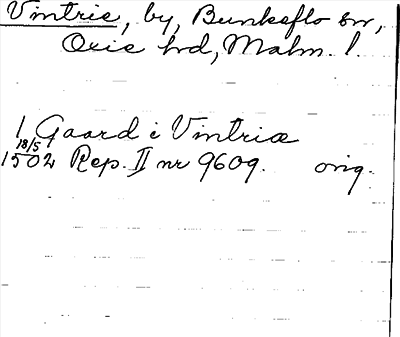 Vintrie, by, Bunkeflo sn,
Oxie hd, Malm. l.
1 Gaard i Vintriæ
18/5
1502 Rep. II nr 9609. orig.